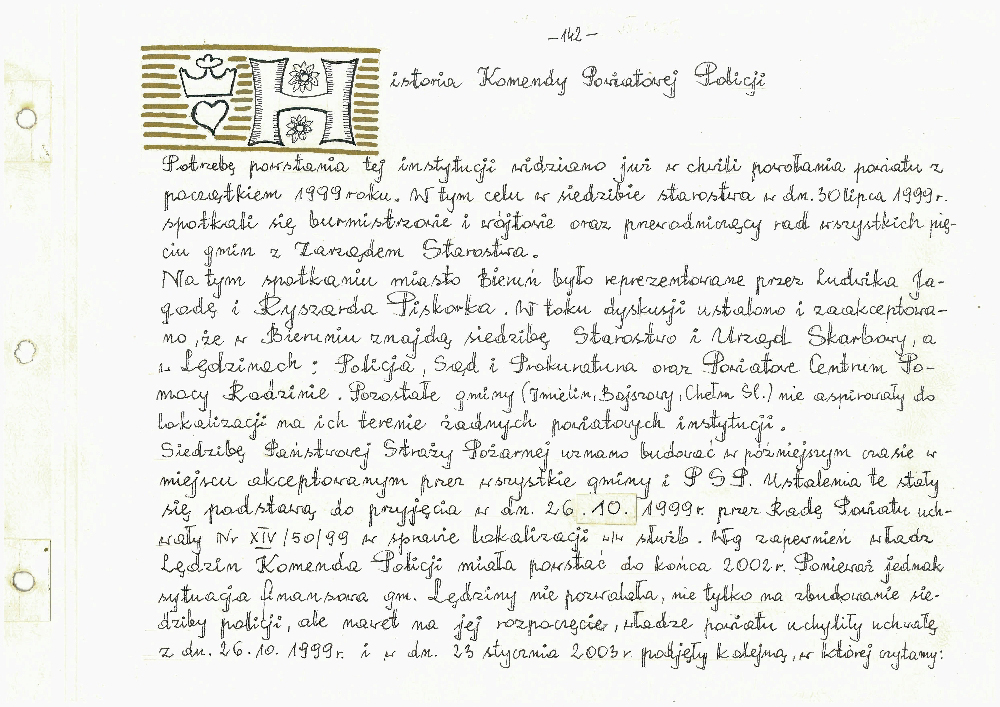 -142-
Historia Komendy Powiatowej Policji
Potrzebę powstania tej instytucji widziano już w chwili powołania powiatu z
początkiem 1999 roku. W tym celu w siedzibie starostwa w dn. 30 lipca 1999r.
spotkali się burmistrzowie i wójtowie oraz przewodniczący rad wszystkich pię-
ciu gmin z Zarządem Starostwa.
Na tym spotkaniu miasto Bieruń było reprezentowane przez Ludwika Ja-
godę i Ryszarda Piskorka. W toku dyskusji ustalono i zaakceptowa-
no, że w Bieruniu znajdą siedzibę Starostwo i Urząd Skarbowy, a
w Lędzinach: Policja, Sąd i Prokuratura oraz Powiatowe Centrum Po-
mocy Rodzinie. Pozostałe gminy (Imielin, Bojszowy, Chełm Śl.) nie aspirowały do
lokalizacji na ich terenie żadnych powiatowych instytucji.
Siedzibę Państwowej Straży Pożarnej uznano budować w późniejszym czasie w
miejscu akceptowanym przez wszystkie gminy i P S P. Ustalenia te stały
się podstawą do przyjęcia w dn. 26.10. 1999r. przez Radę Powiatu uch-
wały Nr XIV/50/99 w sprawie lokalizacji w/w służb. Wg zapewnień władz
Lędzin Komenda Policji miała powstać do końca 2002r. Ponieważ jednak
sytuacja finansowa gm. Lędziny nie pozwalała, nie tylko na zbudowanie sie-
dziby policji, ale nawet na jej rozpoczęcie, władze powiatu uchyliły uchwałę
z dn. 26.10. 1999r. i w dn. 23 stycznia 2003r. podjęły kolejną, w której czytamy: